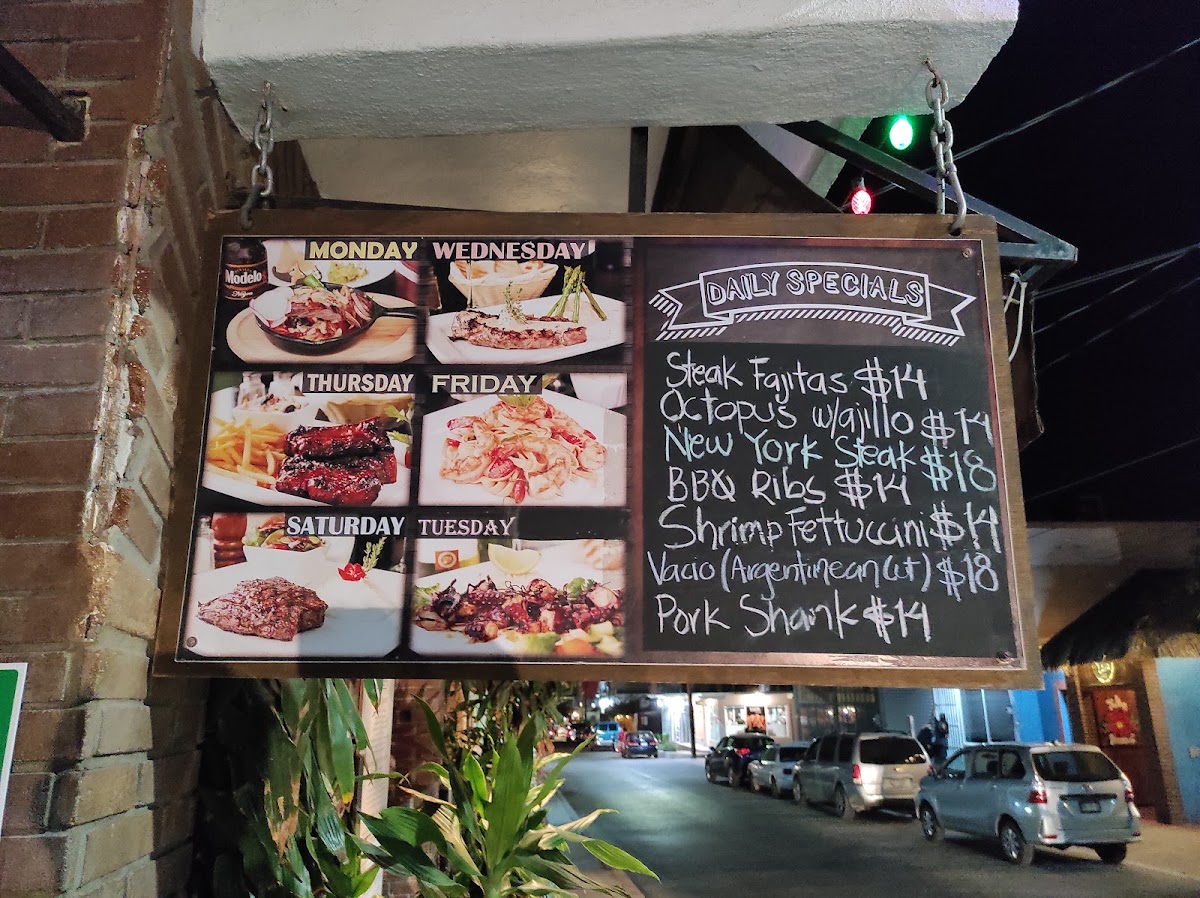 MONDAY
WEDNESDAY
Modelo
THURSDAY
FRIDAY
SATURDAY
TUESDAY
DAILY SPECIALS
Steak Fajitas $14
Octopus w/ajillo $14
New York Steak $18
BBQ Ribs $14
Shrimp Fettuccini $14
Vacio (Argentinean Cut) $18
Pork Shank $14